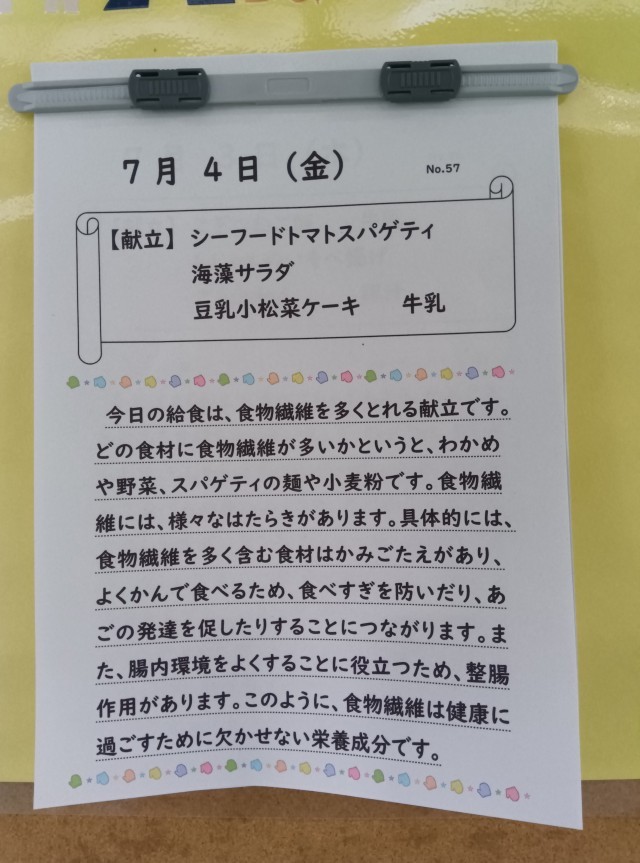 7月 4日（金）
No.57
【献立】 シーフードトマトスパゲティ
海藻サラダ
豆乳小松菜ケーキ　牛乳
今日の給食は、食物繊維を多くとれる献立です。
どの食材に食物繊維が多いかというと、わかめ
や野菜、スパゲティの麺や小麦粉です。食物繊
維には、様々なはたらきがあります。具体的には、
食物繊維を多く含む食材はかみごたえがあり、
よくかんで食べるため、食べすぎを防いだり、あ
ごの発達を促したりすることにつながります。ま
た、腸内環境をよくすることに役立つため、整腸
作用があります。このように、食物繊維は健康に
過ごすために欠かせない栄養成分です。